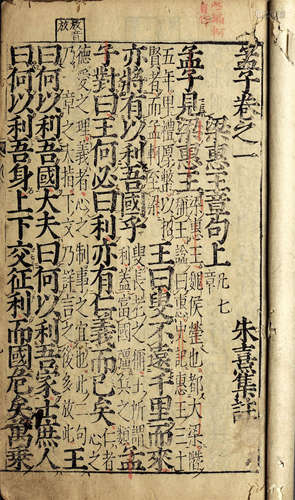 孟子卷之一 朱熹集註
梁惠王章句上 凡七章
孟子見梁惠王 梁惠王魏侯罃也都大梁僭
稱王諡曰惠史記惠王三十
五年卑禮厚幣以招
賢者而孟軻至梁 王曰叟不遠千里而來
亦將有以利吾國乎 叟長老之稱王所謂
利蓋富國彊兵之類 孟
子對曰王何必曰利亦有仁義而已矣 仁者
心之
德愛之理義者心之制事之宜也此二句
乃一章之大指下文乃詳言之後多放此 王
曰何以利吾國大夫曰何以利吾家士庶人
曰何以利吾身上下交征利而國危矣萬乘